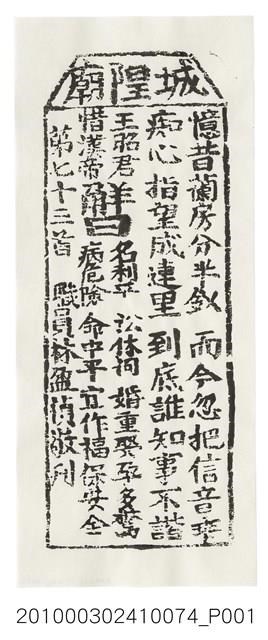 城隍廟
憶昔蘭房分半釵 而今忽把信音乖
痴心指望成連理 到底誰知事不諧
王昭君 解曰 名利平 訟休拘 婚重娶 孕多驚
惜漢帝 病危險 命中平 宜作福 保安全
第七十三首 職員林 敬刊
201000302410074_P001